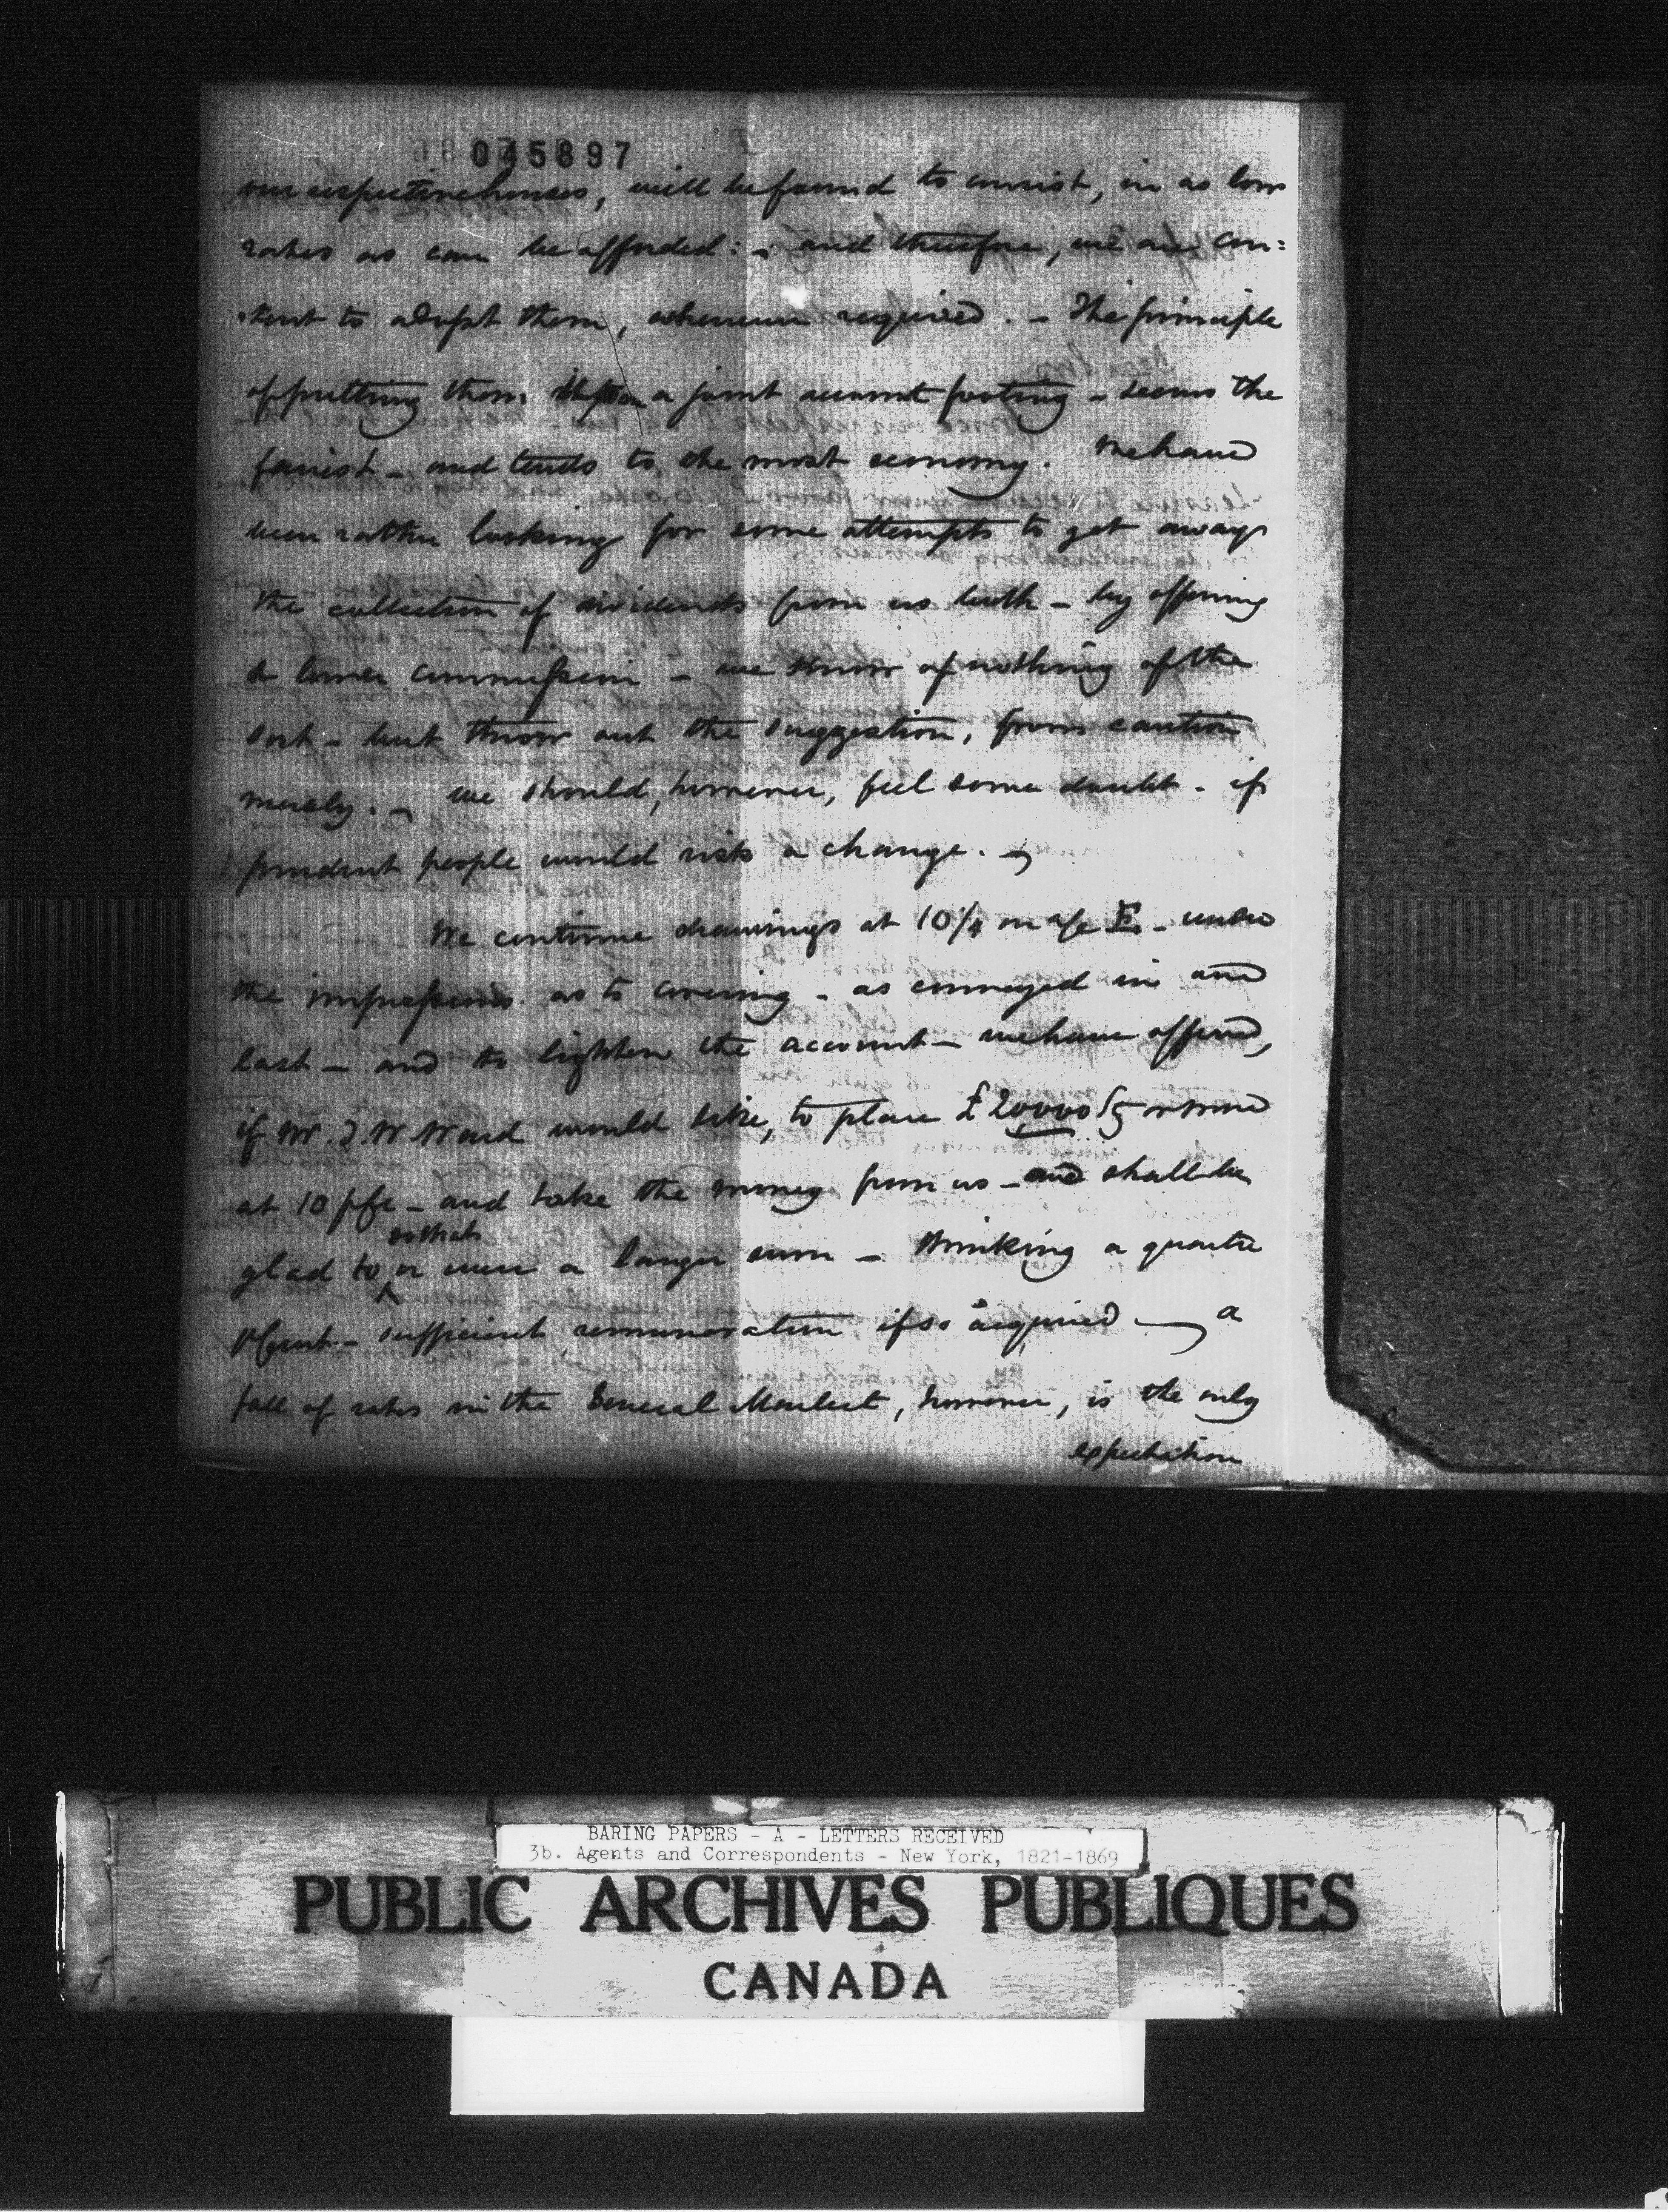 045897
our respective houses, will be found to consist, in as low
rates as can be afforded: - and therefore, we are con=
=tent to adopt them, whenever required. - The principle
of putting them upon a joint account footing - seems the
fairest - and tends to the most economy. We have
been rather looking for some attempts to get away
the collection of dividends from us both - by offering
a lower commission - we know of nothing of the
sort - but throw out the suggestion, from caution
merely. - we should, however, feel some doubt - if
prudent people would risk a change. -
We continue drawings at 10 1/4 on a/c E. - under
the impressions as to covering - as conveyed in our
last - and to lighten the account - we have offered,
if Mr. T. W Ward would like, to place £20000 Stg or more
at 10 p/c - and take the money from us - and shall be
glad to so that or even a larger sum - thinking a quarter
p Cent - sufficient remuneration if so acquired - a
fall of rates in the General Market, however, is the only
expectation
BARING PAPERS - A - LETTERS RECEIVED
3b. Agents and Correspondents - New York, 1821-1869
PUBLIC ARCHIVES PUBLIQUES
CANADA